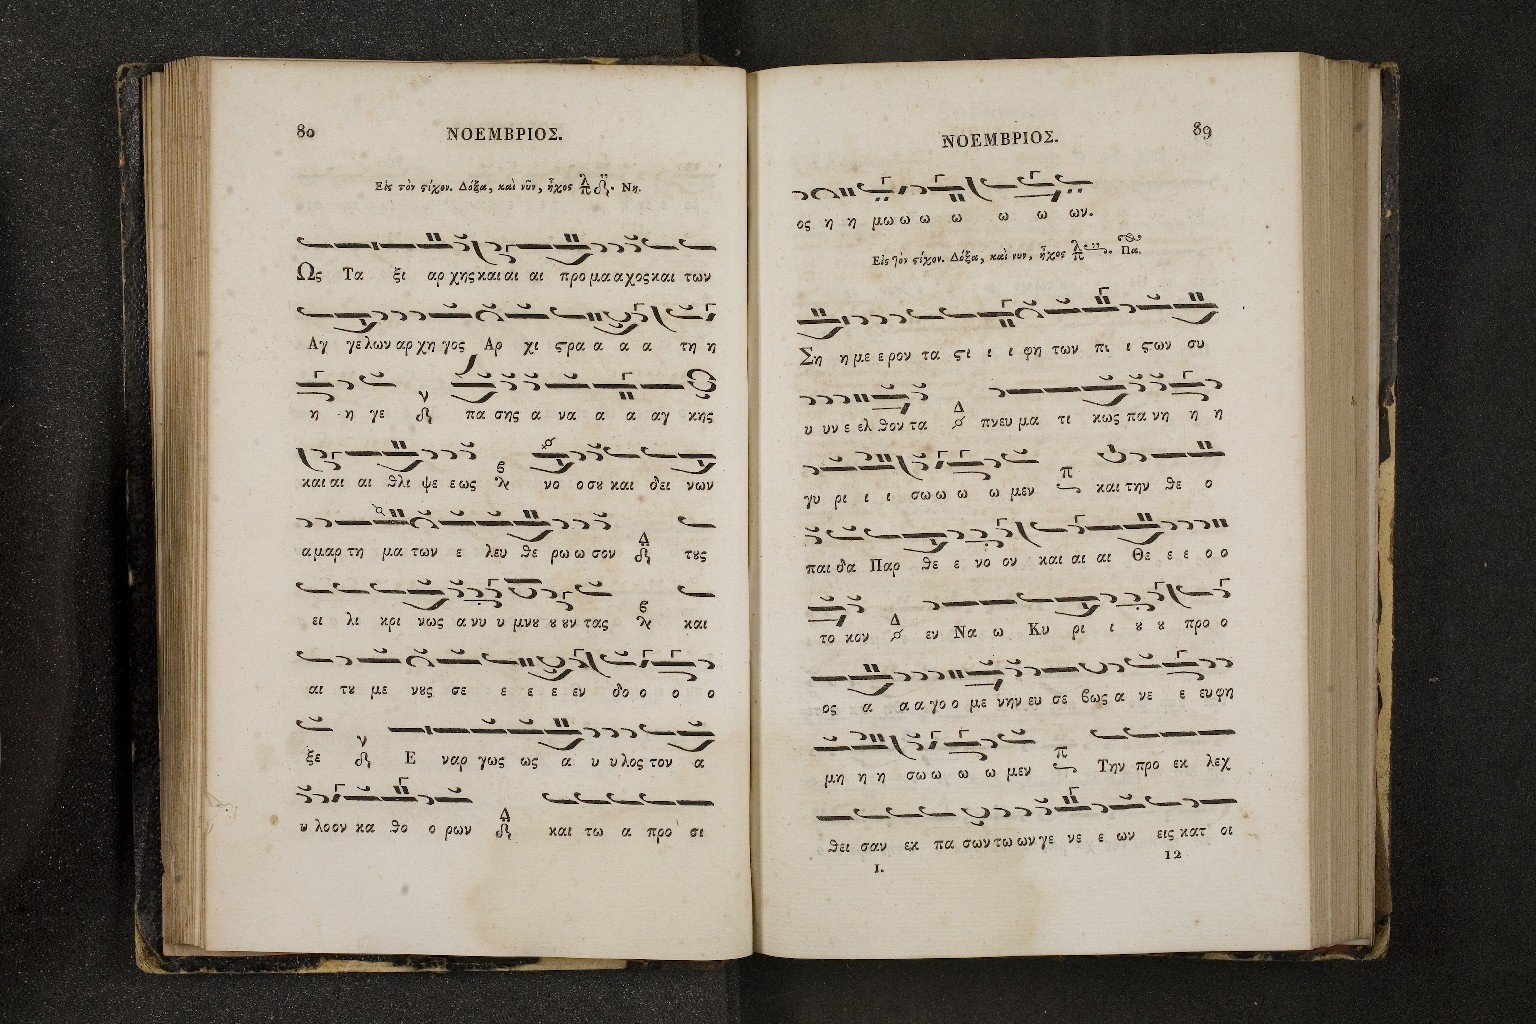 80 ΝΟΕΜΒΡΙΟΣ.
Εἰς τὸν ϛίχον. Δόξα, καὶ νῦν, ἦχος Νη.
Ως Τα ξι αρ χης και αι αι προ μα α χος και των
Αγ γε λων αρ χη γος Αρ χι ϛρα α α α τη η
η η γε πα σης α να α α αγ κης
και αι αι θλι ψε ε ως νο ο σȣ και δει νων
α μαρ τη μα των ε λευ θε ρω ω σον τȣς
ει λι κρι νως α νυ υ μνȣ ȣ ȣν τας και
αι τȣ με νȣς σε ε ε ε εν δο ο ο ο
ξε Ε ναρ γως ως α υ υ λος τον α
υ λο ον κα θο ο ρων και τω α προ σι
ΝΟΕΜΒΡΙΟΣ. 89
ος η η μω ω ω ω ω ω ων.
Εἰς τὸν ϛίχον. Δόξα, καὶ νυν, ἦχος Πα.
Ση η με ε ρον τα ϛι ι ι φη των πι ι ϛων συ
υ υν ε ελ θον τα πνευ μα τι κως πα νη η η
γυ ρι ι ι σω ω ω ω μεν και την θε ο
παι δα Παρ θε ε νο ον και αι αι Θε ε ε ο ο
το κον εν Να ω Κυ ρι ι ȣ ȣ προ ο
ος α α α γο ο με νην ευ σε βως α νε ε ευ φη
μη η η σω ω ω ω μεν Την προ εκ λεχ
θει σαν εκ πα σων τω ων γε νε ε ων εις κατ οι
I. 12